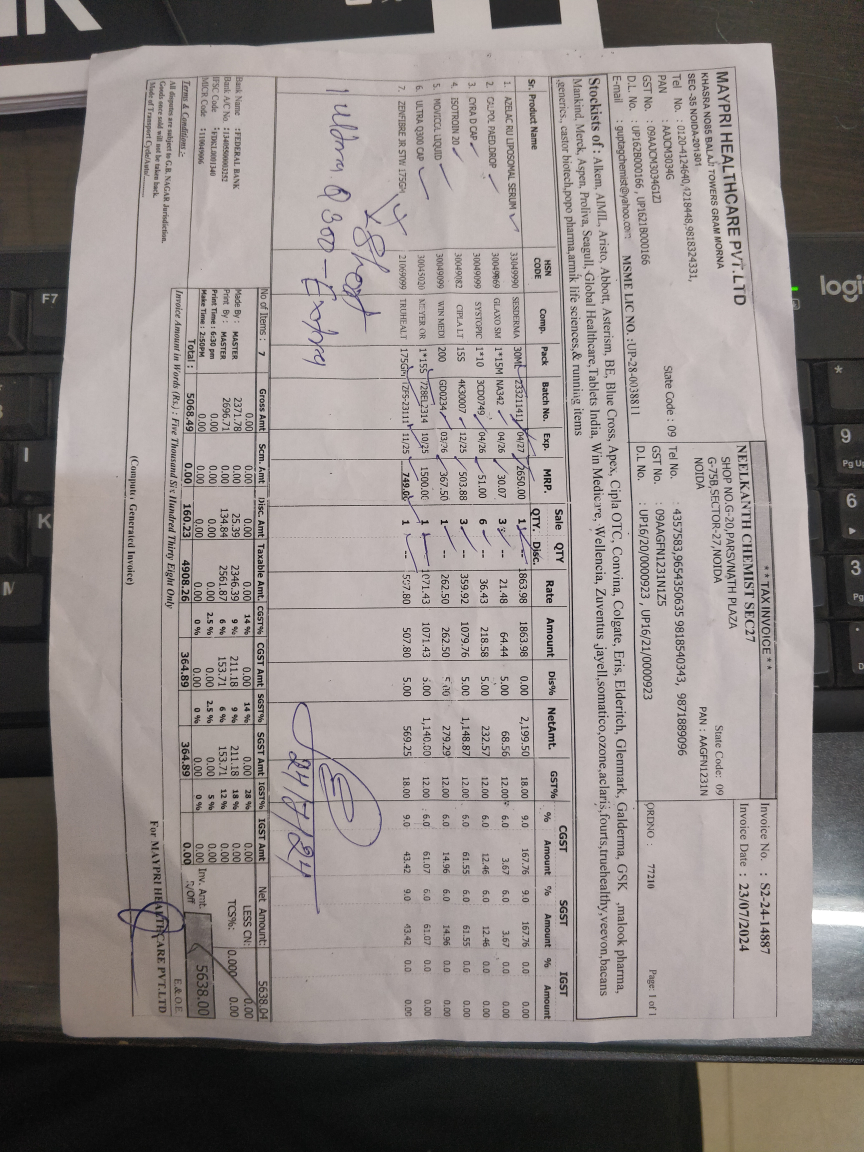 MAYPRI HEALTHCARE PVT.LTD
KHASRA NO85 BALAJI TOWERS GRAM MORNA
SEC -35 NOIDA-201301
Tel No. : 0120-4124640,4218448,9818324331,
PAN : AAJCM3034G State Code : 09
GST No. : 09AAJCM3034G1ZJ
D.L. No. : UP162B000166 , UP1621B000166
E-mail : guptagchemist@yahoo.com MSME LIC NO. :UP-28-0038811
**TAX INVOICE**
NEELKANTH CHEMIST SEC27
SHOP NO.G-20,PARSVNATH PLAZA
G-75B,SECTOR-27,NOIDA
NOIDA State Code: 09
PAN : AAGFN1231N
Tel No. : 4357583,9654350635 9818540343, 9871889096
GST No. : 09AAGFN1231N1Z5
D.L No. : UP16/20/0000923 , UP16/21/0000923
Invoice No. : S2-24-14887
Invoice Date : 23/07/2024
ORDNO : 77210
Page: 1 of 1
Stockists of : Alkem, AIMIL, Aristo, Abbott, Asterism, BE, Blue Cross, Apex, Cipla OTC, Convina, Colgate, Eris, Elderitch, Glenmark, Galderma, GSK ,malook pharma,
Mankind, Merck, Aspen, Proliva, Seagull, Global Healthcare,Tablets India, Win Medicare, Wellencia, Zuventus ,jayell,somatico,ozone,aclaris,fourts,truehealthy,veevon,bacans
,generics,, castor biotech,popo pharma,armik life sciences,& running items
Sr. Product Name HSN CODE Comp. Pack Batch No. Exp. MRP. Sale QTY. QTY Disc. Rate Amount Dis% NetAmt. GST% CGST % Amount SGST % Amount IGST % Amount
1. AZELAC RU LIPOSOMAL SERUM 33049990 SESDERMA 30ML 04/27 2650.00 1 -- 1863.98 1863.98 0.00 2,199.50 18.00 9.0 167.76 9.0 167.76 0.0 0.00
2. CALPOL PAED DROP GLAXO SM 1*15M NA342 04/26 30.07 3 -- 21.48 64.44 5.00 68.56 12.00 6.0 3.67 6.0 3.67 0.0 0.00
3. CYRA D CAP 30049099 SYSTOPIC 1*10 3CD0749 04/26 51.00 6 -- 36.43 218.58 5.00 232.57 12.00 6.0 12.46 6.0 12.46 0.0 0.00
4. ISOTROIN 20 30049082 CIPLA LT 15S 4K30007 12/25 503.88 3 -- 359.92 1079.76 5.00 1,148.87 12.00 6.0 61.55 6.0 61.55 0.0 0.00
5. MOVICOL LIQUID 30049099 WIN MEDI 200 GD0234 03/26 367.50 1 -- 262.50 262.50 5.00 279.29 12.00 6.0 14.96 6.0 14.96 0.0 0.00
6. ULTRA Q300 CAP 30045020 MEYER OR 1*15S 728EL2314 10/25 1500.00 1 -- 1071.43 1071.43 5.00 1,140.00 12.00 6.0 61.07 6.0 61.07 0.0 0.00
7. ZENFIBRE JR STW 175GM 21069099 TRUHEALT 175GM TZFS-23111 11/25 749.00 1 -- 507.80 507.80 5.00 569.25 18.00 9.0 43.42 9.0 43.42 0.0 0.00
Short
1 Ultra Q 300 - Extra
24/7/24
Bank Name :FEDERAL BANK
Bank A/C No
IFSC Code
MICR Code
No of Items : 7
Made By : MASTER
Print By : MASTER
Print Time : 6:30 pm
Make Time : 2:50PM
Gross Amt Scm. Amt Disc. Amt Taxable Amt. CGST% CGST Amt SGST% SGST Amt IGST% IGST Amt
2371.78 0.00 25.39 2346.39 14 % 0.00 14 % 0.00 28 % 0.00
2696.71 0.00 134.84 2561.87 9 % 211.18 9 % 211.18 18 % 0.00
0.00 0.00 0.00 0.00 6 % 153.71 6 % 153.71 12 % 0.00
0.00 0.00 0.00 0.00 2.5 % 0.00 2.5 % 0.00 5 % 0.00
0 % 0.00 0 % 0.00 0 % 0.00
Total : 5068.49 0.00 160.23 4908.26 364.89 364.89 0.00
Net Amount: 5638.04
LESS CN: 0.00
TCS%: 0.000 0.00
Inv. Amt. 5638.00
Terms & Conditions :-
All disputes are subject to G.B. NAGAR Jurisdiction.
Goods once sold will not be taken back.
Made of Transport Cycle/Auto/
Invoice Amount in Words (Rs.) : Five Thousand Six Hundred Thirty Eight Only
E.& O.E
For MAYPRI HEALTHCARE PVT.LTD
(Computer Generated Invoice)
logi
F7
I
K
M
9
Pg Up
6
3